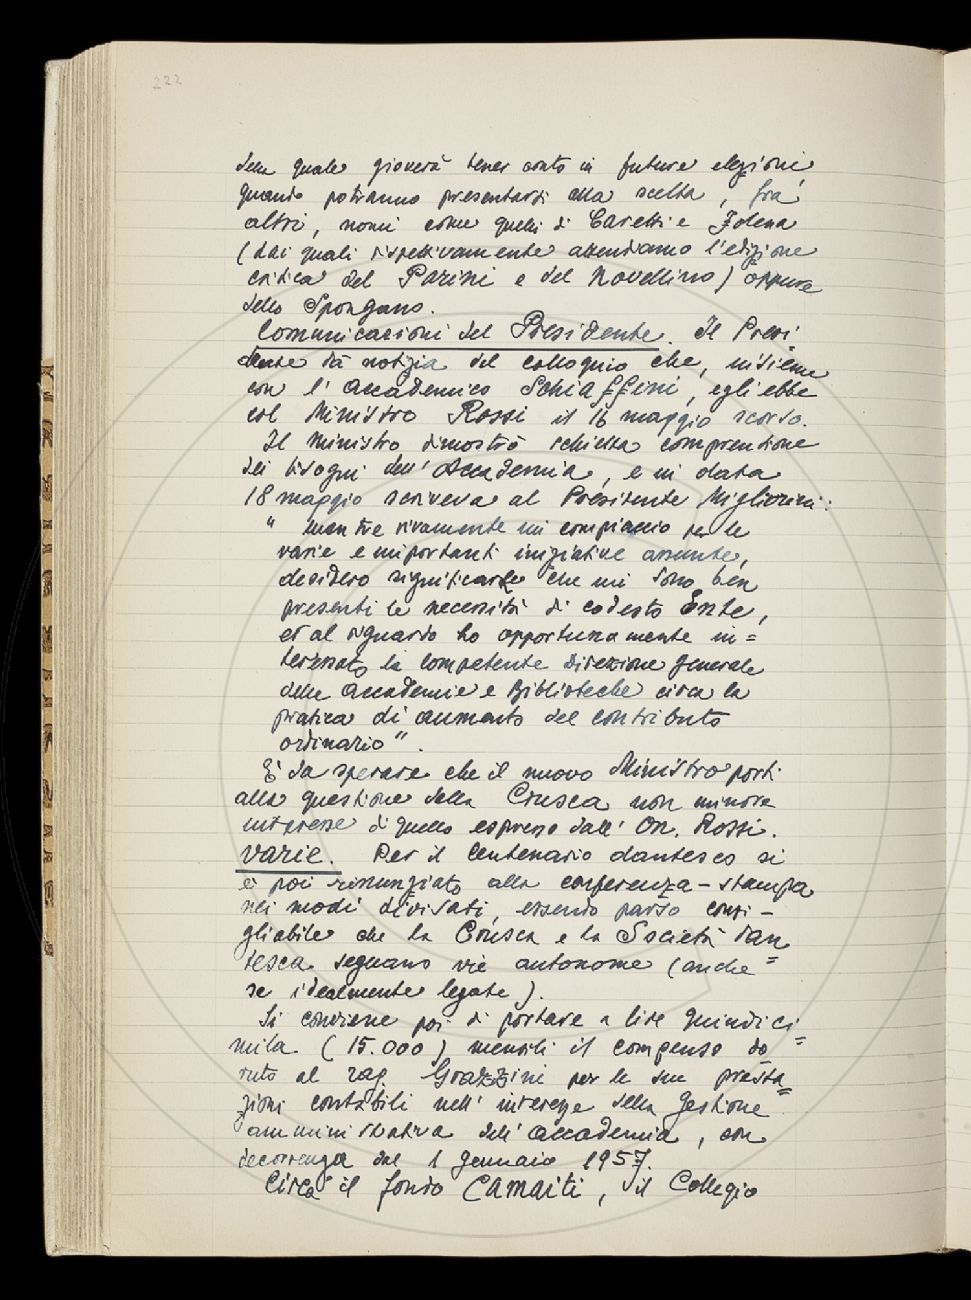 222
della quale gioverà tener conto in future elezioni,
quando potranno presentarsi alla scelta, fra
altri, nomi come quelli di Caretti e Folena
(dai quali rispettivamente attendiamo l'edizione
critica del Parini e del Novellino) oppure
dello Spongano.
Comunicazioni del Presidente. Il Presi-
dente dà notizia del colloquio che, insieme
con l'Accademico Schiaffini, egli ebbe
col Ministro Rossi il 16 maggio scorso.
Il Ministro dimostrò schietta comprensione
dei bisogni dell'Accademia, e in data
18 maggio scriveva al Presidente Migliorini:
" Mentre vivamente mi compiaccio per le
varie e importanti iniziative assunte,
desidero significarLe che mi sono ben
presenti le necessità di codesto Ente,
et al riguardo ho opportunamente in=
teressato la competente Direzione Generale
delle Accademie e Biblioteche circa la
pratica di aumento del contributo
ordinario".
È da sperare che il nuovo Ministro porti
alla questione della Crusca non minore
interesse di quello espresso dall'On. Rossi.
Varie. Per il Centenario dantesco si
è poi rinunziato alla conferenza-stampa
nei modi divisati, essendo parso consi-
gliabile che la Crusca e la Società dan=
tesca seguano vie autonome (anche
se idealmente legate).
Si conviene poi di portare a lire quindici=
mila (15.000) mensili il compenso do=
vuto al rag. Grazzini per le sue presta=
zioni contabili nell'interesse della gestione
amministrativa dell'Accademia, con
decorrenza dal 1 gennaio 1957.
Circa il fondo Camaiti, il Collegio